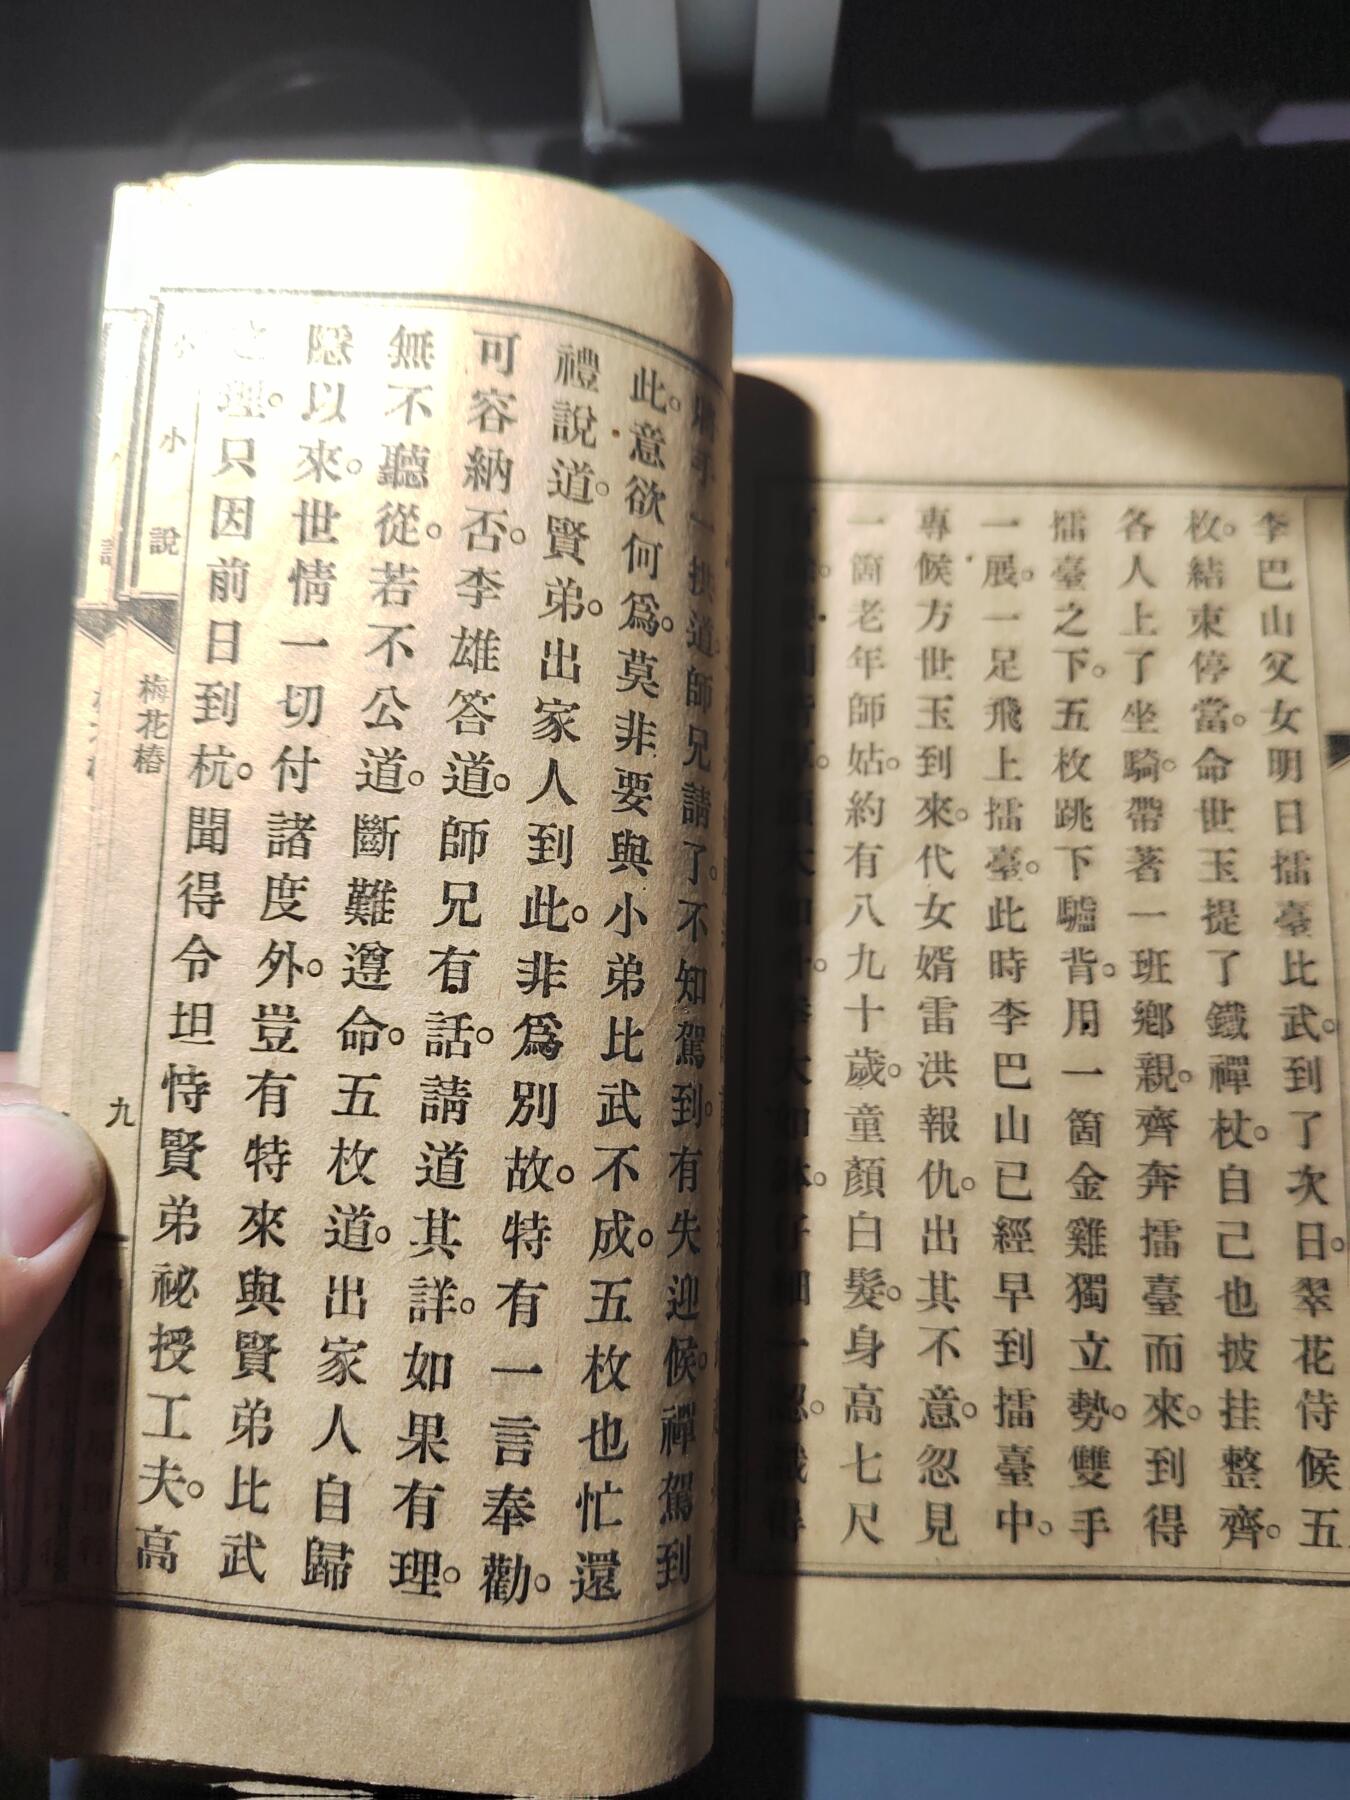 李巴山父女明日擂臺比武。到了次日。翠花侍候五
枚。結束停當。命世玉提了鐵禪杖。自己也披挂整齊。
各人上了坐騎。帶著一班鄉親。齊奔擂臺而來。到得
擂臺之下。五枚跳下驢背。用一箇金雞獨立勢。雙手
一展。一足飛上擂臺。此時李巴山已經早到擂臺中。
專候方世玉到來。代女婿雷洪報仇。出其不意。忽見
一箇老年師姑。約有八九十歲。童顏白髮。身高七尺
一拱道。師兄請了。不知駕到。有失迎候。禪駕到
此。意欲何爲。莫非要與小弟比武不成。五枚也忙還
禮說道。賢弟。出家人到此。非爲別故。特有一言奉勸。
可容納否。李雄答道。師兄有話。請道其詳。如果有理。
無不聽從。若不公道。斷難遵命。五枚道。出家人自歸
隱以來。世情一切付諸度外。豈有特來與賢弟比武
之理。只因前日到杭。聞得令坦恃賢弟祕授工夫。高
小小說
梅花樁
九